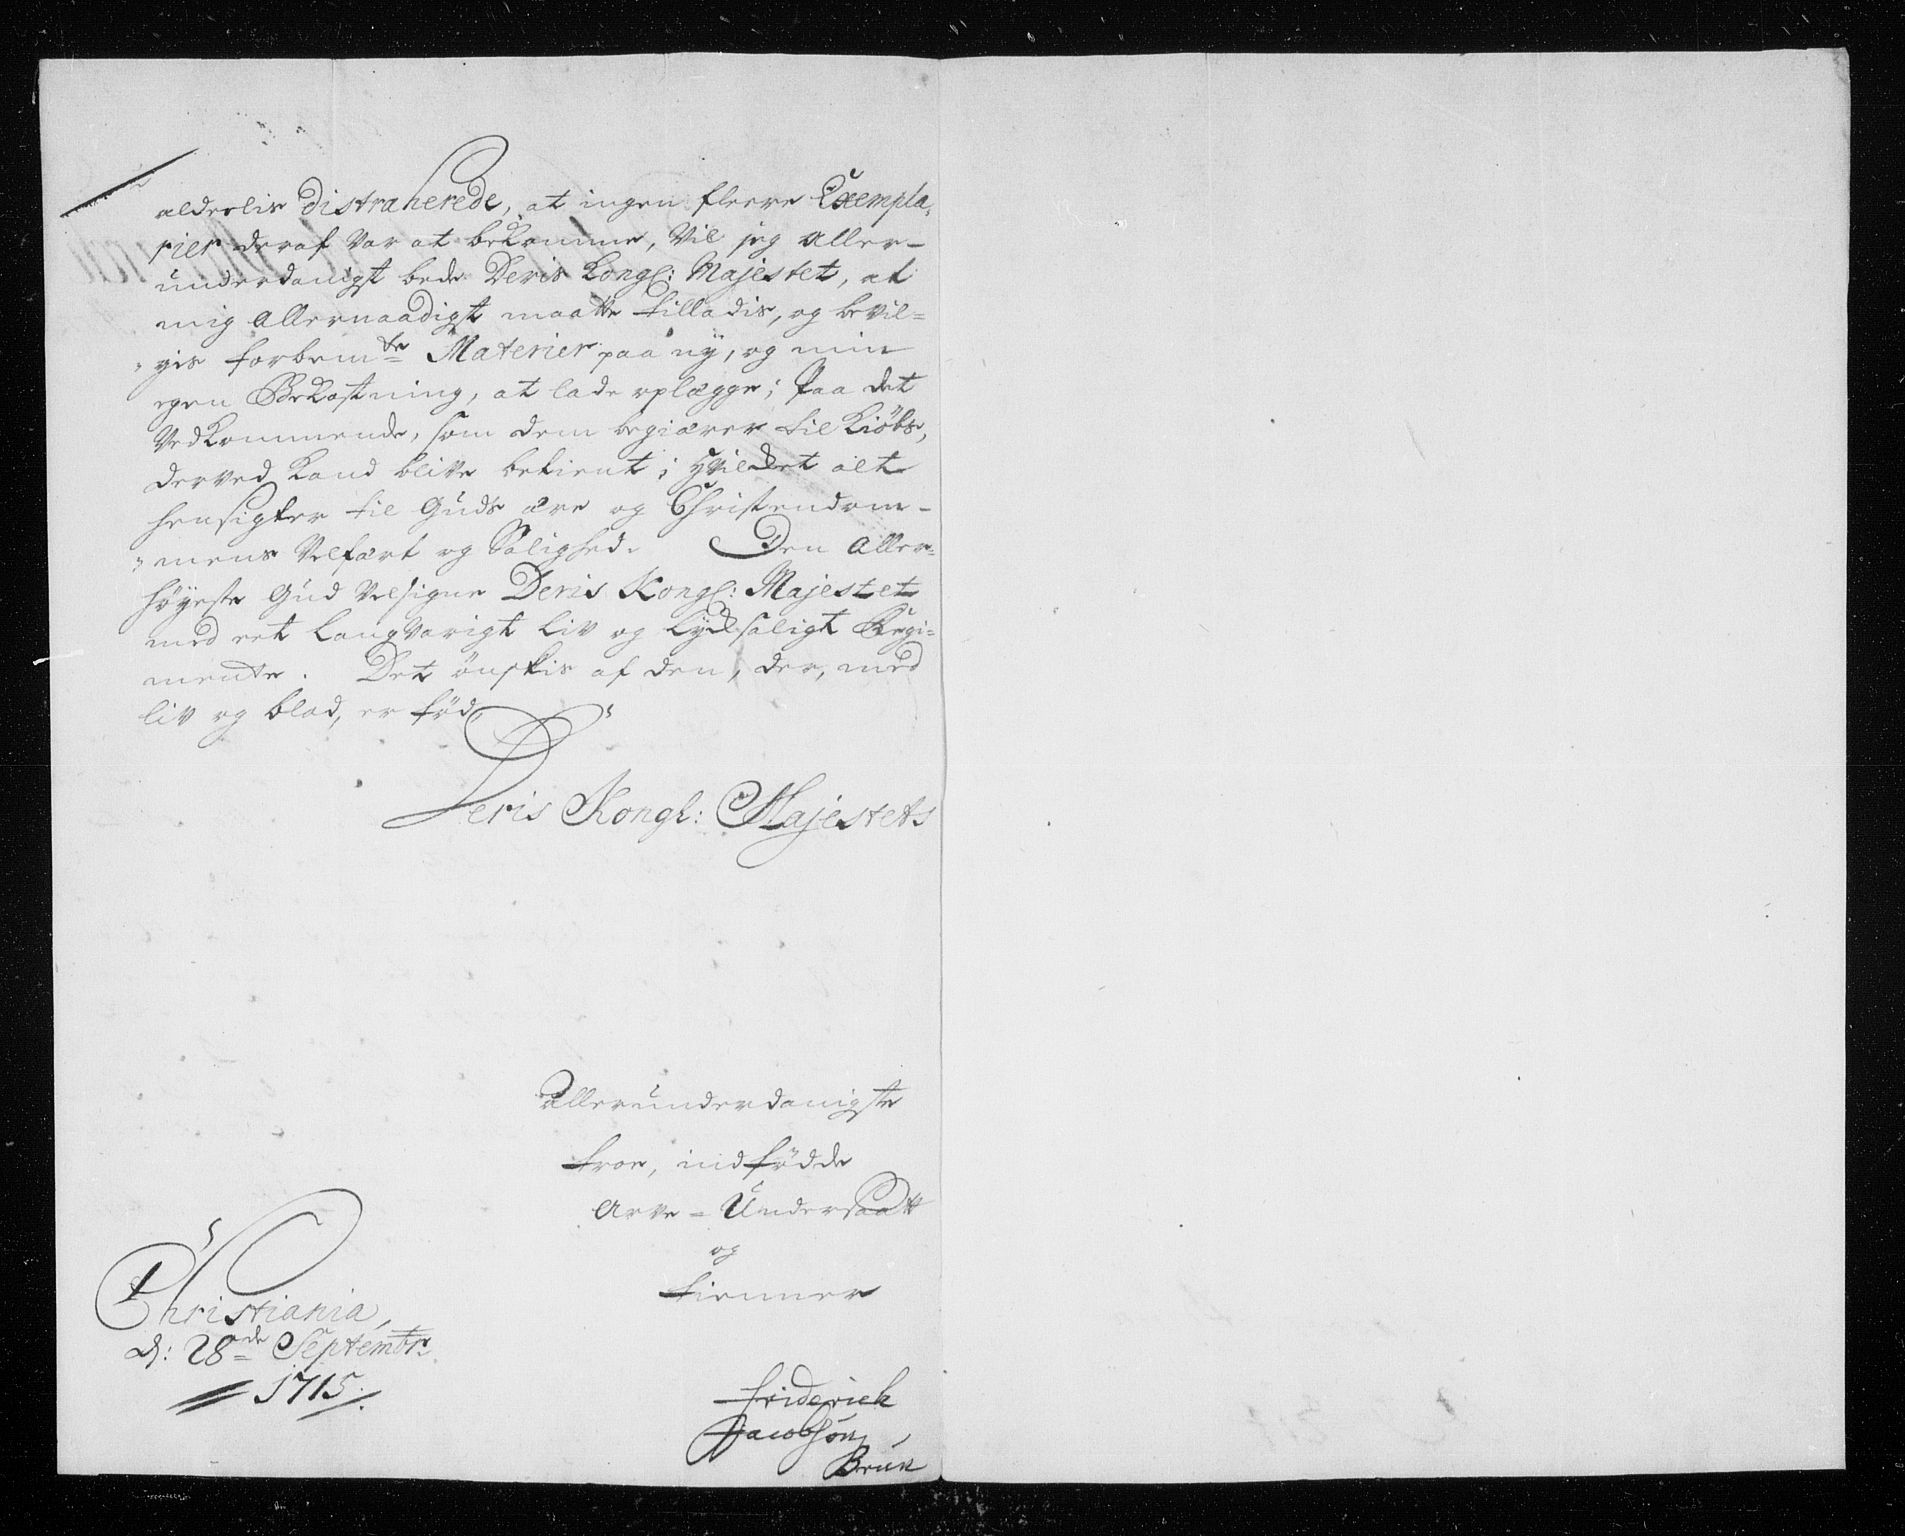 alderlis distraherede, at ingen fleere Exempla,
rier deraf var at bekomme, Vil jeg aller-
underdanigst bede Deris Kongl: Majestet, at
mig allernaadigst maatte tilladis, og bevil-
gis forbemte Materier paa ny, og min
egen Bekostning, at lade oplægge; Paa det
Vedkommende, som dem begiærer til Kiöbs,
derved kand blive betient; Hvilket alt
hensigter til Guds ære og Christendom-
mens Velfært og Salighed. Den aller-
höyeste Gud velsigne Deris Kongl: Majestet
med eet langvarigt liv og lycksaligt Regi-
mente. Det önskis af den, der, med
liv og blod, er fød,
Deris Kongl: Majestets
allerunderdanigste
troe, indfødde
Arve-Undersaatt
og
tienner
Christiania,
d: 28de Septembr:
1715.
Friderich
Jacobsøn
Brun